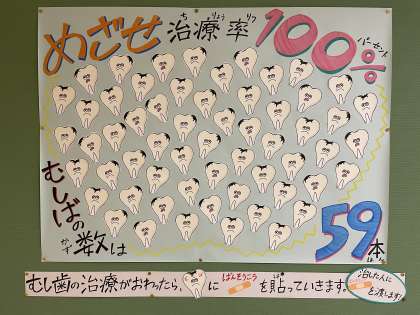 めざせ治療率100%
ち りょう りつ パーセント
むしばの数は59本
かず ほん
むし歯の治療がおわったら、にばんそうこうを貼っていきます。
治した人に
を渡します!